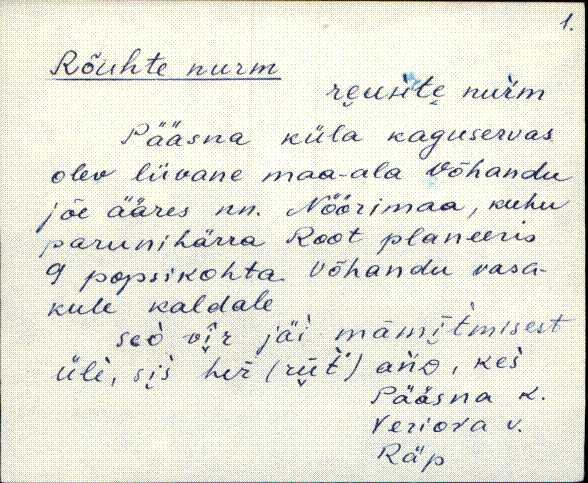 1.
Rõuhte nurm
re̮uhte̮ nurm
Pääsna küla kaguservas
olev liivane maa-ala Võhandu
jõe ääres nn. Nöörimaa, kuhu
parunihärra Root planeeris
9 popsikohta Võhandu vasa-
kule kaldale
seo jäi
üle, sis her (rüt́) and, keś
Pääsna k.
Veriora v.
Räp